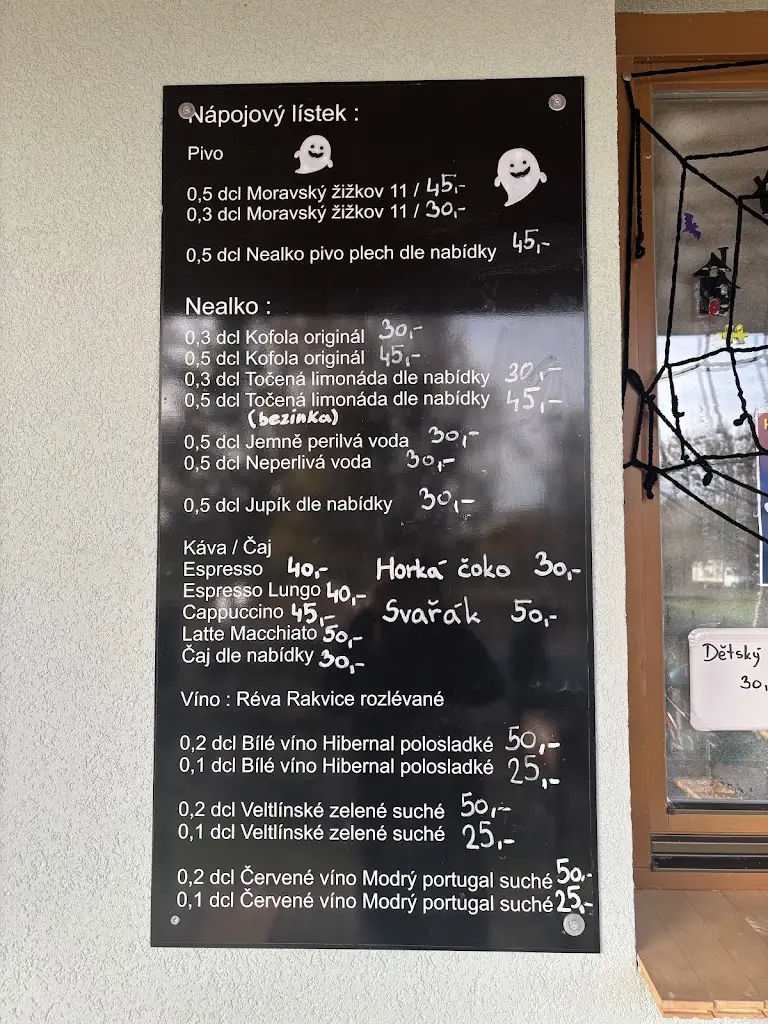 Nápojový lístek :
Pivo
0,5 dcl Moravský žižkov 11 / 45,-
0,3 dcl Moravský žižkov 11 / 30,-
0,5 dcl Nealko pivo plech dle nabídky 45,-
Nealko :
0,3 dcl Kofola originál 30,-
0,5 dcl Kofola originál 45,-
0,3 dcl Točená limonáda dle nabídky 30,-
0,5 dcl Točená limonáda dle nabídky 45,-
(bezinka)
0,5 dcl Jemně perilvá voda 30,-
0,5 dcl Neperlivá voda 30,-
0,5 dcl Jupík dle nabídky 30,-
Káva / Čaj
Espresso 40,- Horká čoko 30,-
Espresso Lungo 40,-
Cappuccino 45,- Svařák 50,-
Latte Macchiato 50,-
Čaj dle nabídky 30,-
Víno : Réva Rakvice rozlévané
0,2 dcl Bílé víno Hibernal polosladké 50,-
0,1 dcl Bílé víno Hibernal polosladké 25,-
0,2 dcl Veltlínské zelené suché 50,-
0,1 dcl Veltlínské zelené suché 25,-
0,2 dcl Červené víno Modrý portugal suché 50,-
0,1 dcl Červené víno Modrý portugal suché 25,-
Dětský
30,